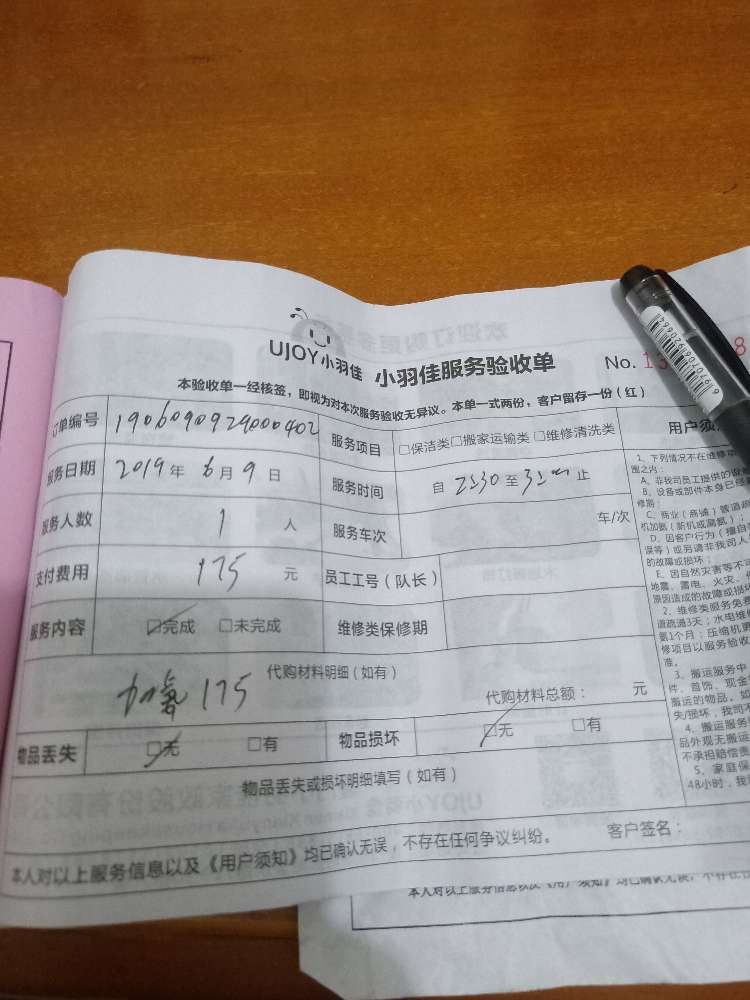 UJOY小羽佳 小羽佳服务验收单 No. 13
本验收单一经核签，即视为对本次服务验收无异议。本单一式两份，客户留存一份（红）
订单编号 190609092900402 服务项目 □保洁类□搬家运输类□维修清洗类
服务日期 2019年6月9日 服务时间 自 2:30 至 3:2 止
服务人数 1 人 服务车次 车/次
支付费用 175 元 员工工号（队长）
服务内容 □完成 □未完成 维修类保修期
代购材料明细（如有）
加氟175 代购材料总额： 元
物品丢失 □无 □有 物品损坏 □无 □有
物品丢失或损坏明细填写（如有）
本人对以上服务信息以及《用户须知》均已确认无误，不存在任何争议纠纷。 客户签名：
用户须
1、下列情况不在维修
围之内：
A、非我司员工提供的
B、设备或部件本身已
修期；
C、商业（商铺）管道
机加氨（新机或腐氨），
D、因客户行为（擅自
误等）或另请非我司人
的故障或损坏；
E、因自然灾害等不
地震、雷电、火灾、
原因造成的故障或损坏
2、维修类服务免费
道疏通3天；水电维
氨1个月；压缩机更
修项目以服务验收
准。
3、搬运服务中
件、首饰、现金
搬运的物品。如
失/损坏，我司不
4、搬运服务
品外观无搬运
不承担赔偿责
5、家庭保
48小时，我
6917407069290664